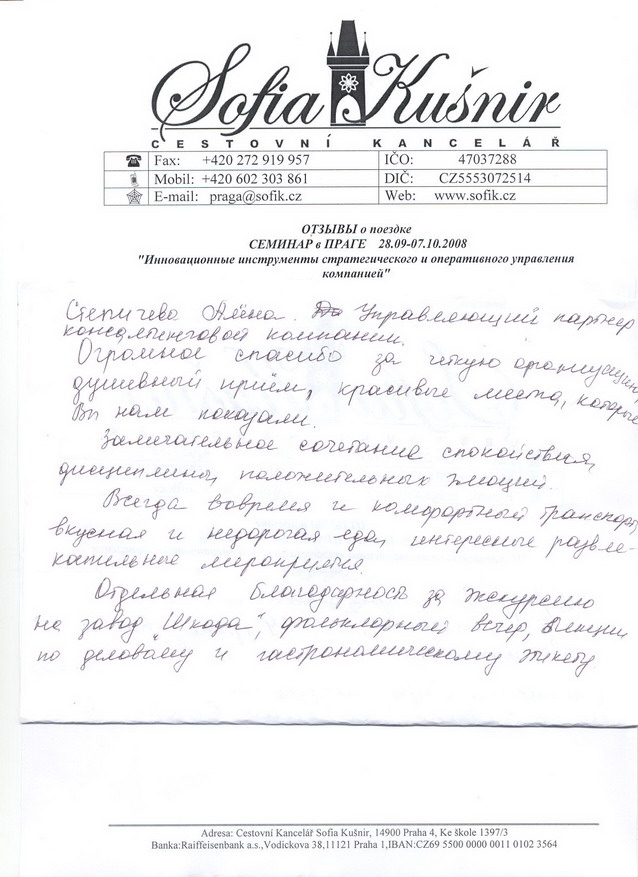 Sofia Kušnir
CESTOVNÍ KANCELÁŘ
Fax: +420 272 919 957 IČO: 47037288
Mobil: +420 602 303 861 DIČ: CZ5553072514
E-mail: praga@sofik.cz Web: www.sofik.cz
ОТЗЫВЫ о поездке
СЕМИНАР в ПРАГЕ 28.09-07.10.2008
"Инновационные инструменты стратегического и оперативного управления
компанией"
Алёна. Управляющий партнер
консалтинговой компании.
Огромное спасибо за четкую организацию,
душевный приём, красивые места, которые
Вы нам показали.
Замечательное сочетание спокойствия,
дисциплины, положительных эмоций.
Всегда вовремя и комфортный транспорт,
вкусная и недорогая еда, интересные развле-
кательные мероприятия.
Отдельная благодарность за экскурсию
на завод "Шкода", фольклорный вечер, лекции
по деловому и гастрономическому этикету
Adresa: Cestovní Kancelář Sofia Kušnir, 14900 Praha 4, Ke škole 1397/3
Banka:Raiffeisenbank a.s.,Vodickova 38,11121 Praha 1,IBAN:CZ69 5500 0000 0011 0102 3564